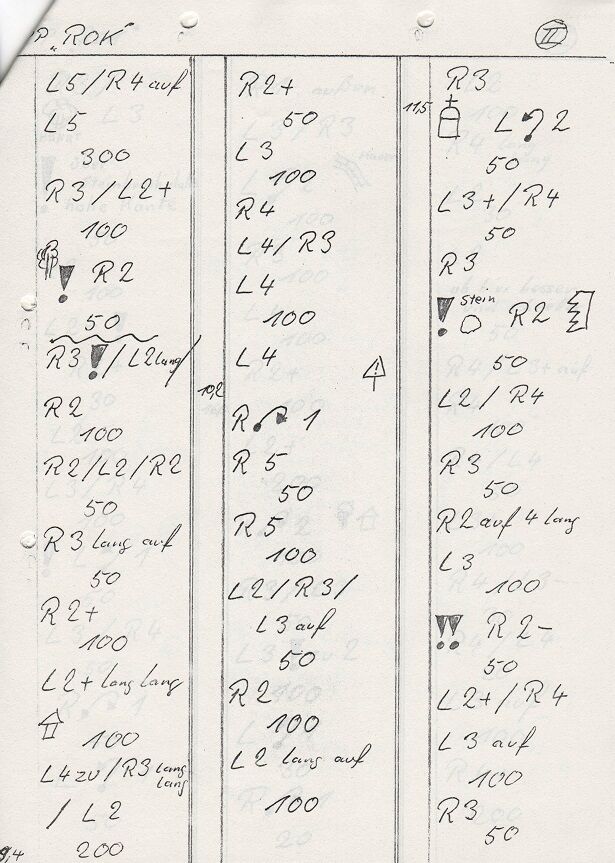 P „ROK" II
L5/R4 auf
L5
300
R3/L2+
100
! R2
50
R3!/L2 lang/
R2
100
R2/L2/R2
50
R3 lang auf
50
R2+
100
L2+ lang lang
100
L4 zu/R3 lang
lang
/L2
200
9,4
R2+
50
L3
100
R4
L4/R3
L4
100
L4
!
10,2
R 1
R5
50
R5
100
L2/R3/
L3 auf
50
R2
100
L2 lang auf
100
R3
11,5
L 2
50
L3+/R4
50
R3
! Stein R2
50
L2/R4
100
R3
50
R2 auf 4 lang
L3
100
!! R2-
50
L2+/R4
L3 auf
100
R3
50